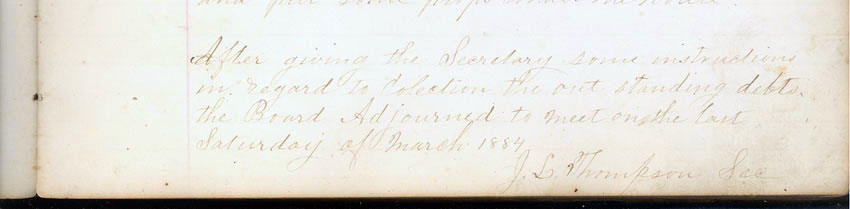 and put some props under the house.
After giving the Secretary some instructions
in regard to Colection the out standing debts.
the Board Adjourned to meet on the last
Saturday of March 1884
J. L. Thompson Sec